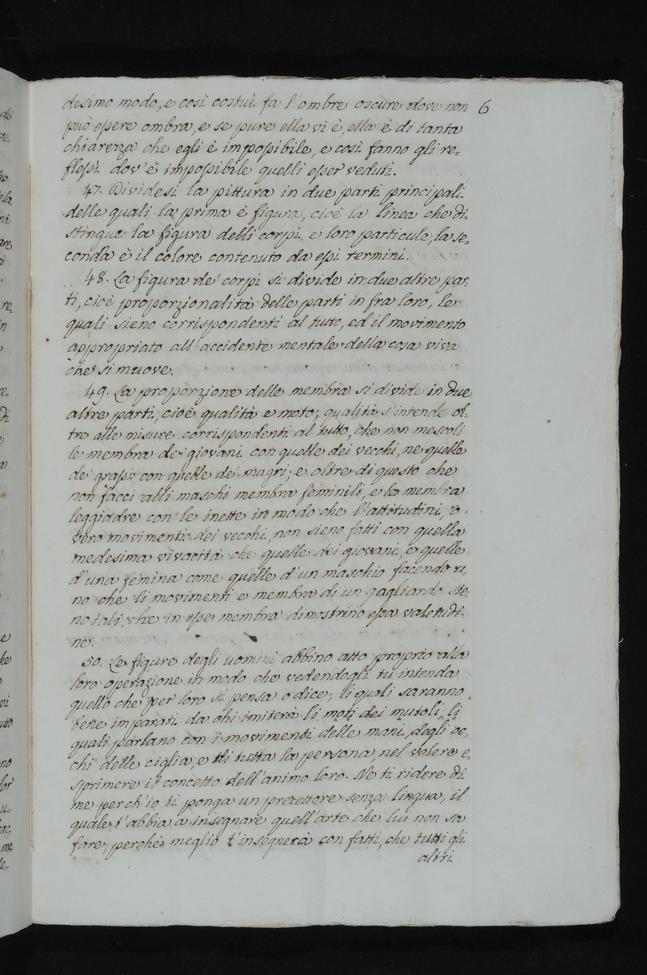 desimo modo, e così costui fa l'ombre oscure dove non 6
può essere ombra, e se pure ella vi è, ella è di tanta
chiarezza che egli è impossibile, e così fanno gli re=
flessi dov'è impossibile quelli esser veduti.
47. Dividesi la pittura in due parti principali
delle quali la prima è figura, cioè la linea che di
stingue la figura delli corpi e loro particule, la se=
conda è il colore contenuto da essi termini.
48. La figura de' corpi si divide in due altre par
ti, cioè proporzionalità delle parti in fra loro, le
quali sieno corrispondenti al tutto, ed il movimento
appropriato all'accidente mentale della cosa viva
che si muove.
49. La proporzione delle membra si divide in due
altre parti, cioè qualità e moto; qualità s'intende ol
tre alle misure corrispondenti al tutto, che non mescoli
le membra de' giovani con quelle dei vecchi, ne quelle
de' grassi con quelle de' magri; e oltre di questo che
non facci alli maschi membra feminili, e le membra
leggiadre con le inette in modo che l'attitudini, o
vero movimenti dei vecchi, non sieno fatti con quella
medesima vivacità che quelle dei giovani, e quelle
d'una femina come quelle d'un maschio facendo
no che li movimenti e membra di un gagliardo sie
no tali, che in esse membra dimostrino essa valetudi=
ne.
50. Le figure degli uomini abbino atto proprio alla
loro operazione in modo che vedendogli tu intenda
quello che per loro si pensa o dice; li quali saranno
bene imparati da chi imiterà li moti dei mutoli, li
quali parlano con i movimenti delle mani, degli oc=
chi, delle ciglia, e di tutta la persona, nel volere e
sprimere il concetto dell'animo loro. Ne ti ridere di
me perch'io ti ponga un precettore senza lingua, il
quale t'abbia a insegnare quell'arte che lui non sa
fare, perchè meglio t'insegnerà con fatti, che tutti gli
altri